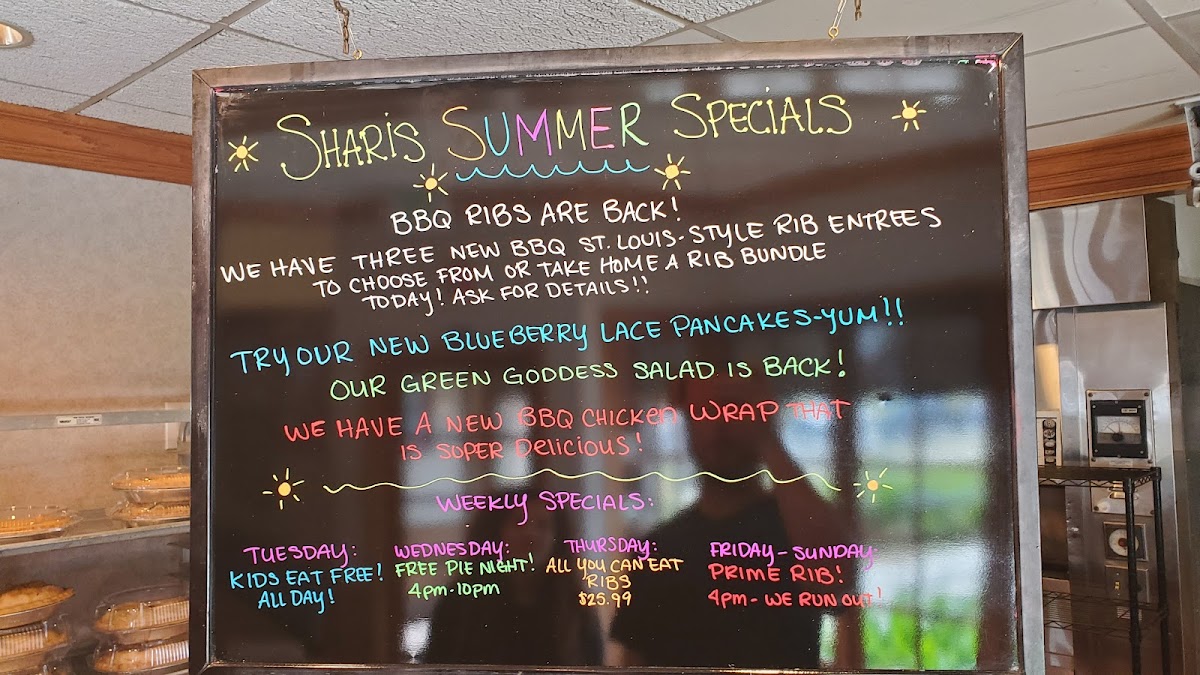 SHARIS SUMMER SPECIALS
BBQ RIBS ARE BACK!
WE HAVE THREE NEW BBQ ST. LOUIS-STYLE RIB ENTREES
TO CHOOSE FROM OR TAKE HOME A RIB BUNDLE
TODAY! ASK FOR DETAILS!!
TRY OUR NEW BLUEBERRY LACE PANCAKES-YUM!!
OUR GREEN GODDESS SALAD IS BACK!
WE HAVE A NEW BBQ CHICKEN WRAP THAT
IS SUPER DELICIOUS!
WEEKLY SPECIALS:
TUESDAY:
KIDS EAT FREE!
ALL DAY!
WEDNESDAY:
FREE PIE NIGHT!
4PM-10PM
THURSDAY:
ALL YOU CAN EAT
RIBS
$25.99
FRIDAY - SUNDAY
PRIME RIB!
4PM - WE RUN OUT!